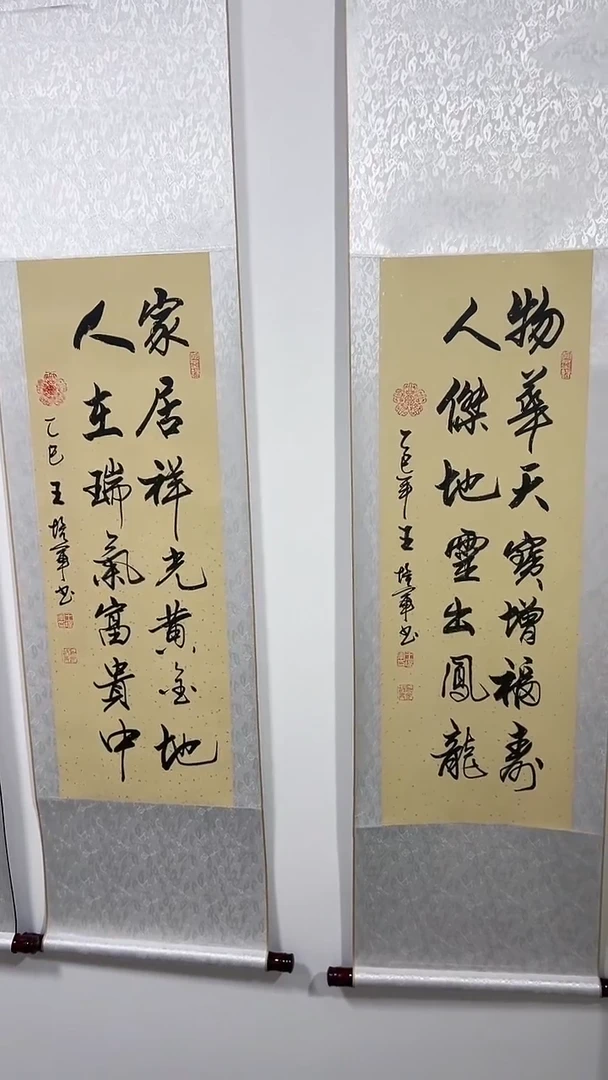 物華天寶增福壽
人傑地靈出鳳龍
乙巳年王培軍书
家居祥光黄金地
人在瑞氣富貴中
乙巳王培軍书